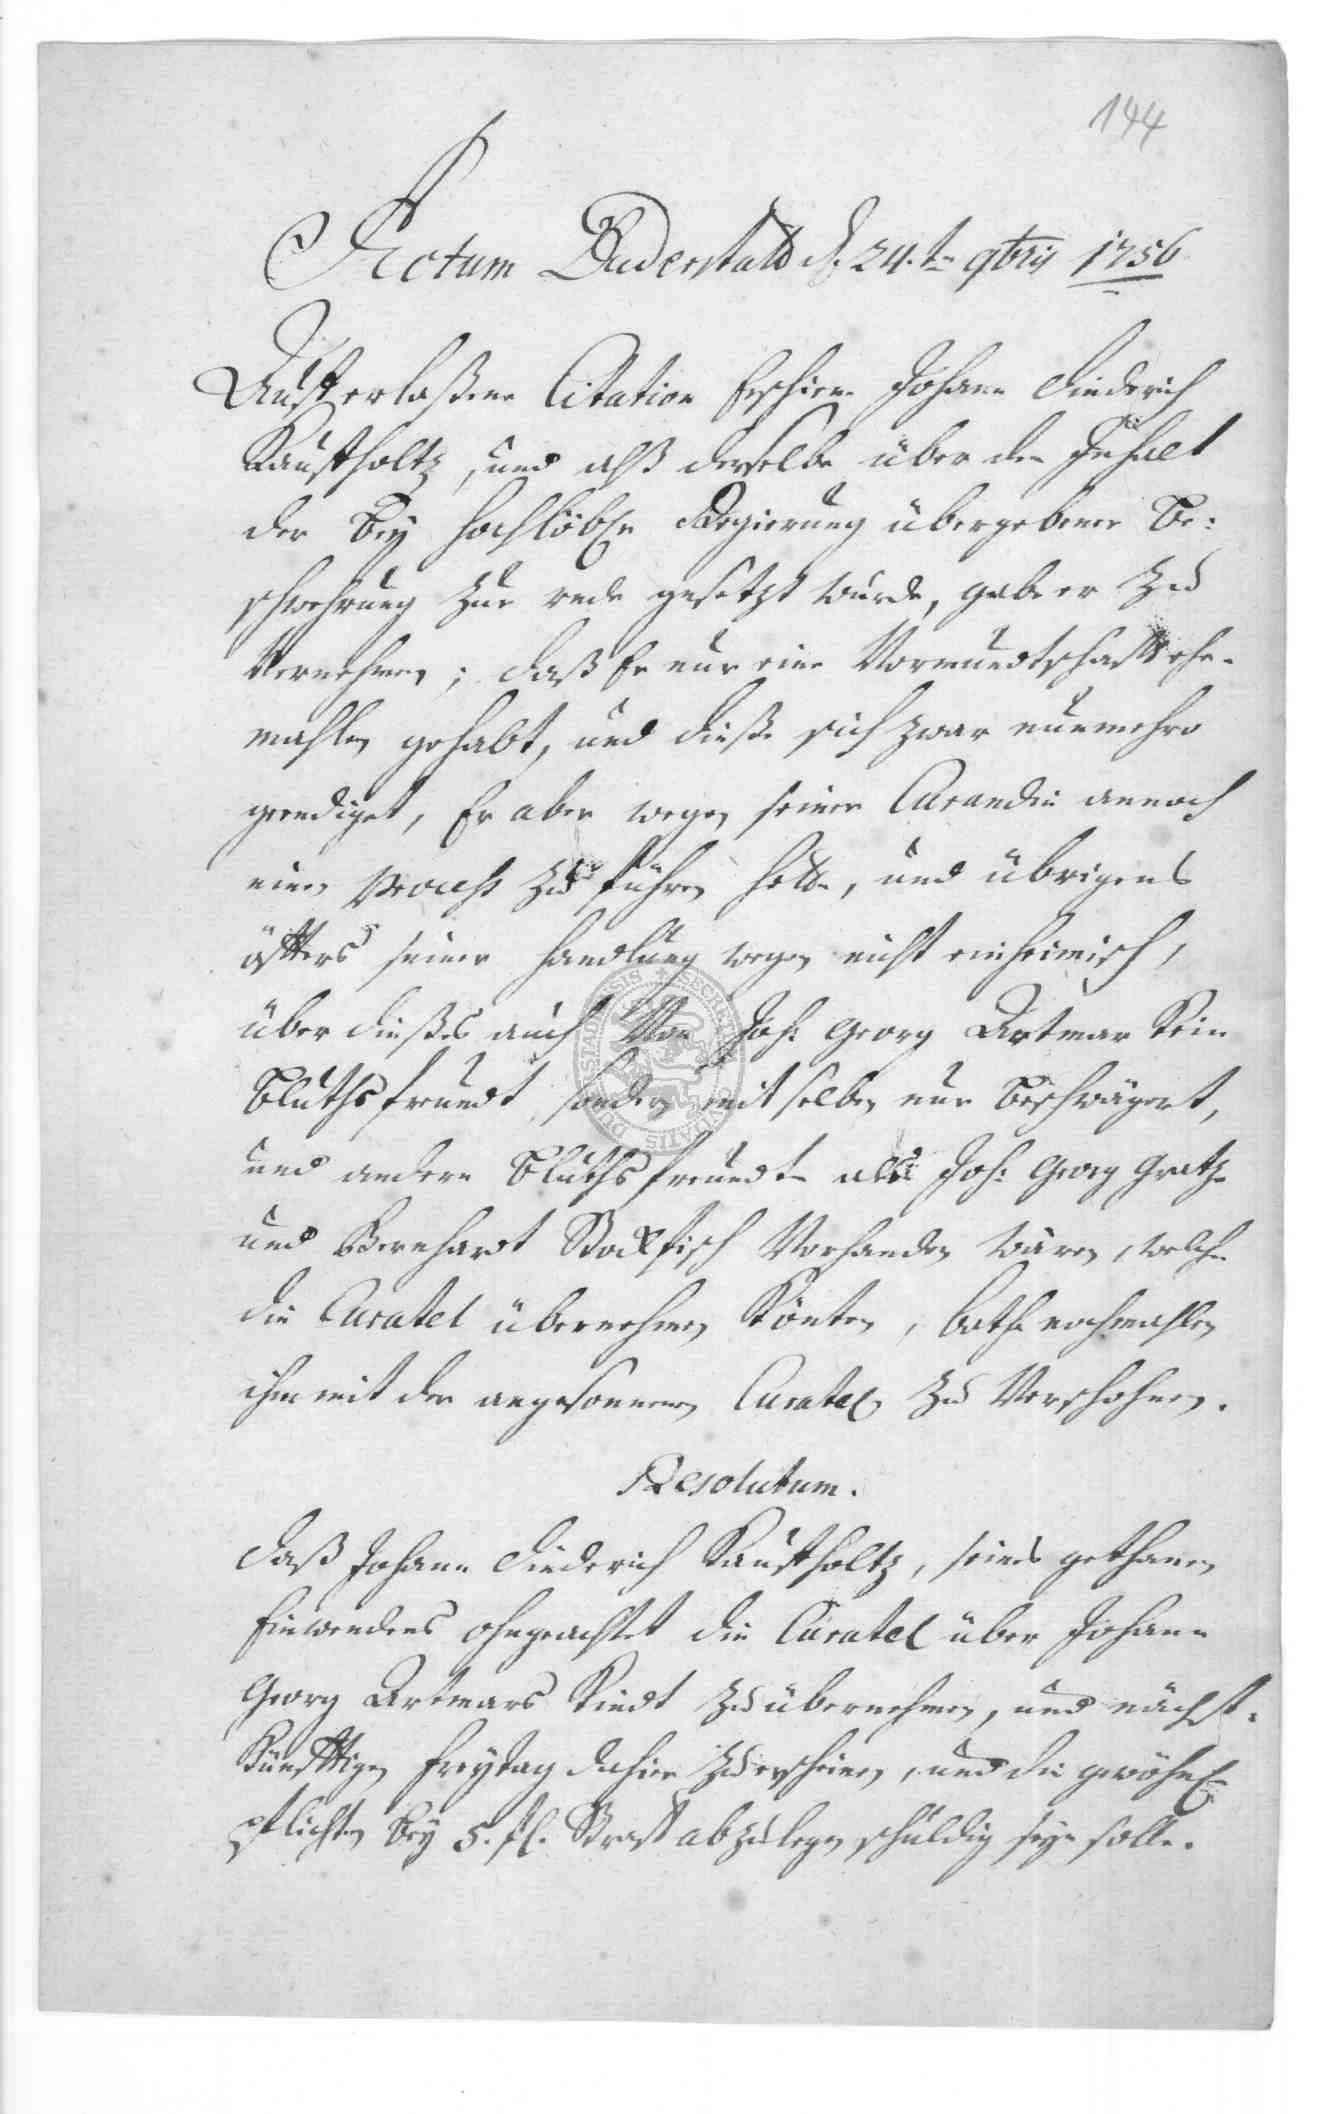 144
Actum Duderstatt d. 24.t 9bris 1756
Auff erlaßene Citation Erschiene Johann Diederich
Kauffholtz, und alß derselbe über den Inhalt
der bey hochlöbl Regierung übergebener be:
schwehrung zur rede gesetzt wurde, gabe er zu
Vernehmen; daß Er nur eine Vormundtschafft ehe-
mahlen gehabt, und dieße sich zwar nunmehro
geendiget, Er aber wegen seiner Curandin annoch
einen Process zu führen hette, und übrigens
öffters seiner Handlung wegen nicht einheimisch,
über dießes auch Von Joh: Georg Artmar kein
bluthsfreundt, sondern mit selben nur beschwägert,
und andere bluthsfreundte als Joh: Georg Gratze
und Bernhardt Stockfisch Vorhanden wären, welche
die Curatel übernehmen könten, bathe nochmahlen
ihn mit der angesonnenen Curatel zu Verschohnen.
Resolutum.
Daß Johann Diederich Kauffholtz, seines gethanen
Einwendens ohngeachtet die Curatel über Johann
Georg Artmars Kindt zu übernehmen, und nächst-
künfftigen Freytag dahier zu erscheinen, und die gewöhnl.
pflichten bey 5. fl. Straff abzulegen schuldig seyn solle.
SECRET CIVITATIS DUDERSTADENSIS